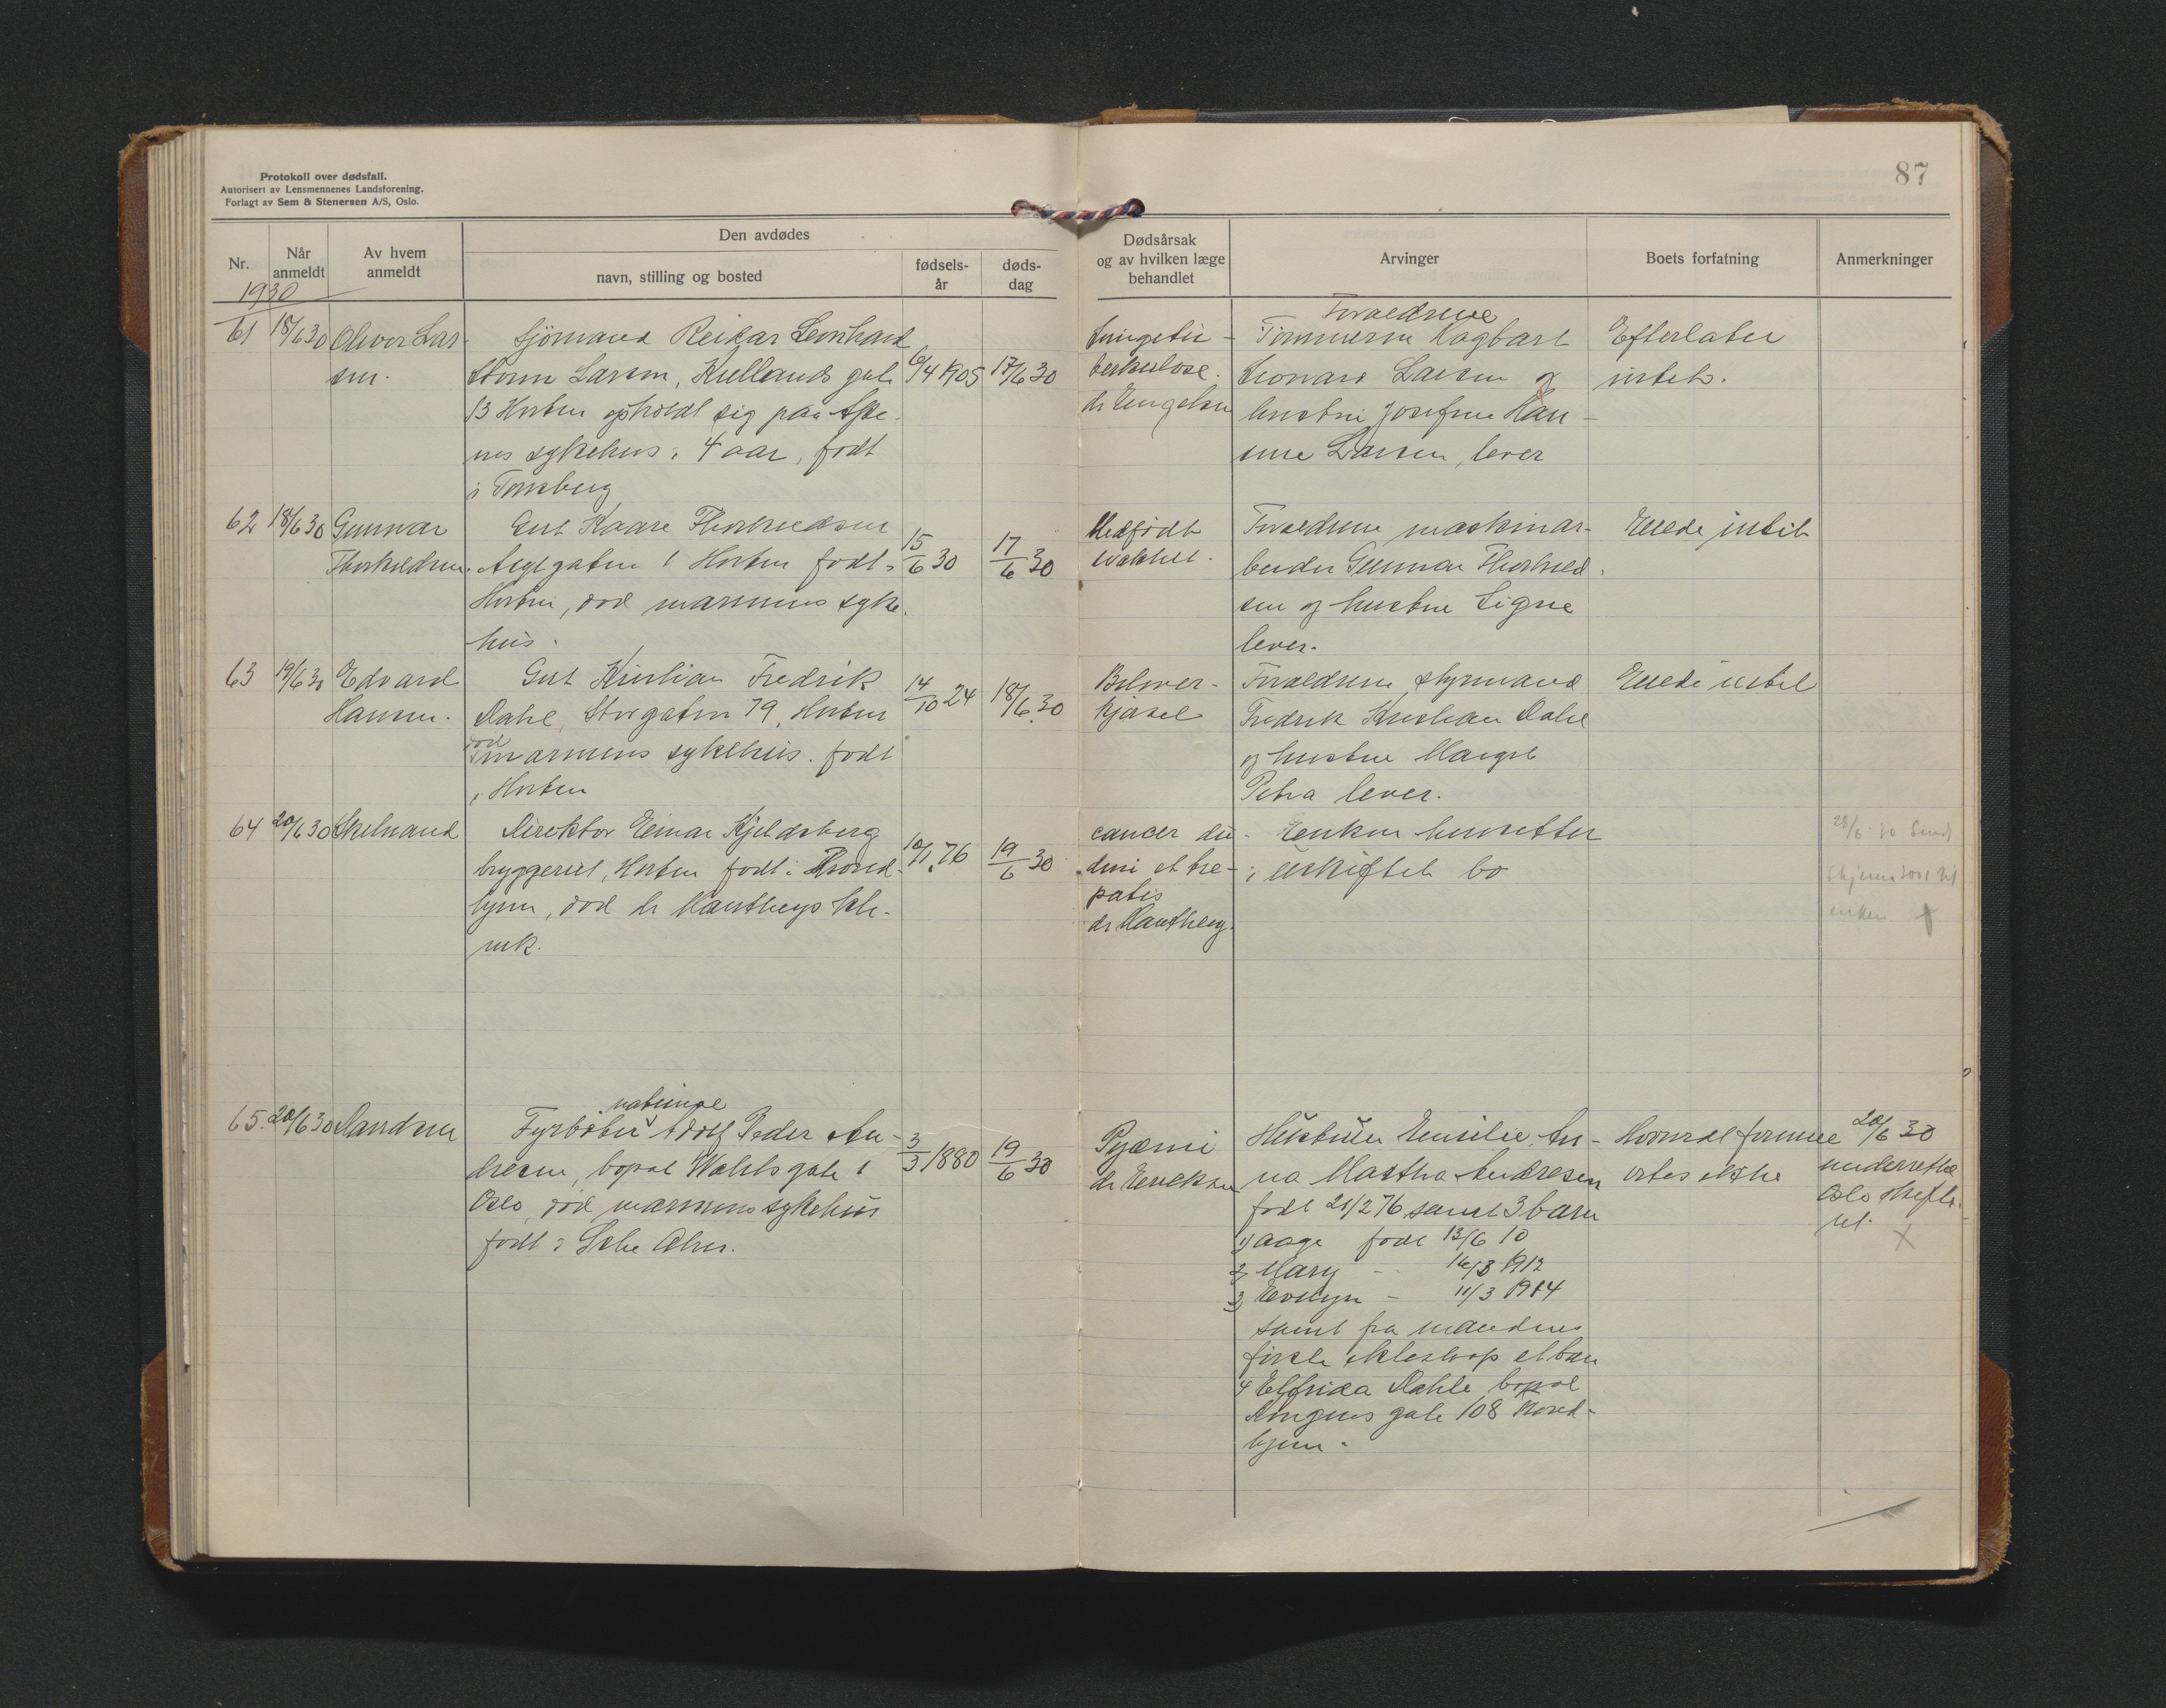 87
Protokoll over dødsfall.
Autorisert av Lensmennenes Landsforening.
Forlagt av Sem & Stenersen A/S, Oslo.
Nr.
Når
anmeldt
Av hvem
anmeldt
Den avdødes
navn, stilling og bosted
fødsels-
år
døds-
dag
Dødsårsak
og av hvilken læge
behandlet
Arvinger
Boets forfatning
Anmerkninger
1930
61
18/6 30
Oliver Lar-
sen.
Sjömand Reikar Leonhard
Storm Larsen, Kiellands gate
13 Horten opholdt sig paa
nes sykehus i 4 aar, född
i Tönsberg
6/4 1905
17/6 30
Lungetu-
berkulose.
dr Engelsen
Foraeldrene
Tömmerm Hagbart
Leonard Larsen og
hustru Josefine Han-
sine Larsen, lever
Efterlater
intet.
62
18/6 30
Gunnar
Thorkildsen.
Gut Kaare Thorkildsen
gaten 1 Horten född i
Horten, död marinens syke.
hus.
15/6 30
17/6 30
Medfödt
svakhet.
Foraeldrene maskinar-
beider Gunnar Thorkild.
sen og hustru Signe
lever.
Eiede intet
63
19/6 30
Edvard
Hansen.
Gut Kristian Fredrik
Dahl, Storgaten 79, Horten
död
marinens sykehus. född
i Horten
14/10 24
18/6 30
Bilover-
kjörsel
Foraeldrene styrmand
Fredrik Kristian Dahl
og hustru Margit
Petra lever.
Eiede intet
64
20/6 30
Skelnand
Direktör Einar Kjeldsberg
bryggeriet, Horten född i Trond-
hjem, död dr Kli-
nik.
10/1 76
19/6 30
cancer duo-
deni et he-
patis
dr
Enken hensitter
i uskiftet bo
28/6 30 Sendt
skjema 3001 til
enken
65.
20/6 30
Sandsen
Fyrböter Adolf Peder An-
dresen, bopæl Waldts gate 1
Oslo, död marinens sykehus
född i Aker.
3/3 1880
19/6 30
Pyæmi
dr Eriksen
Hustruen Emilie An-
na Martha Andresen
född 21/2 76 samt 3 barn
1) Aage född 13/6 10
2) Mary - 16/3 1912
3) Evelyn - 11/3 1914
samt fra mandens
förste ekteskap et barn
4 Elfrida Dahle bopæl
gate 108 Trond-
hjem.
Hvorvidt formue
vites ikke
20/6 30
underrettet
Oslo skifte-
ret.
X